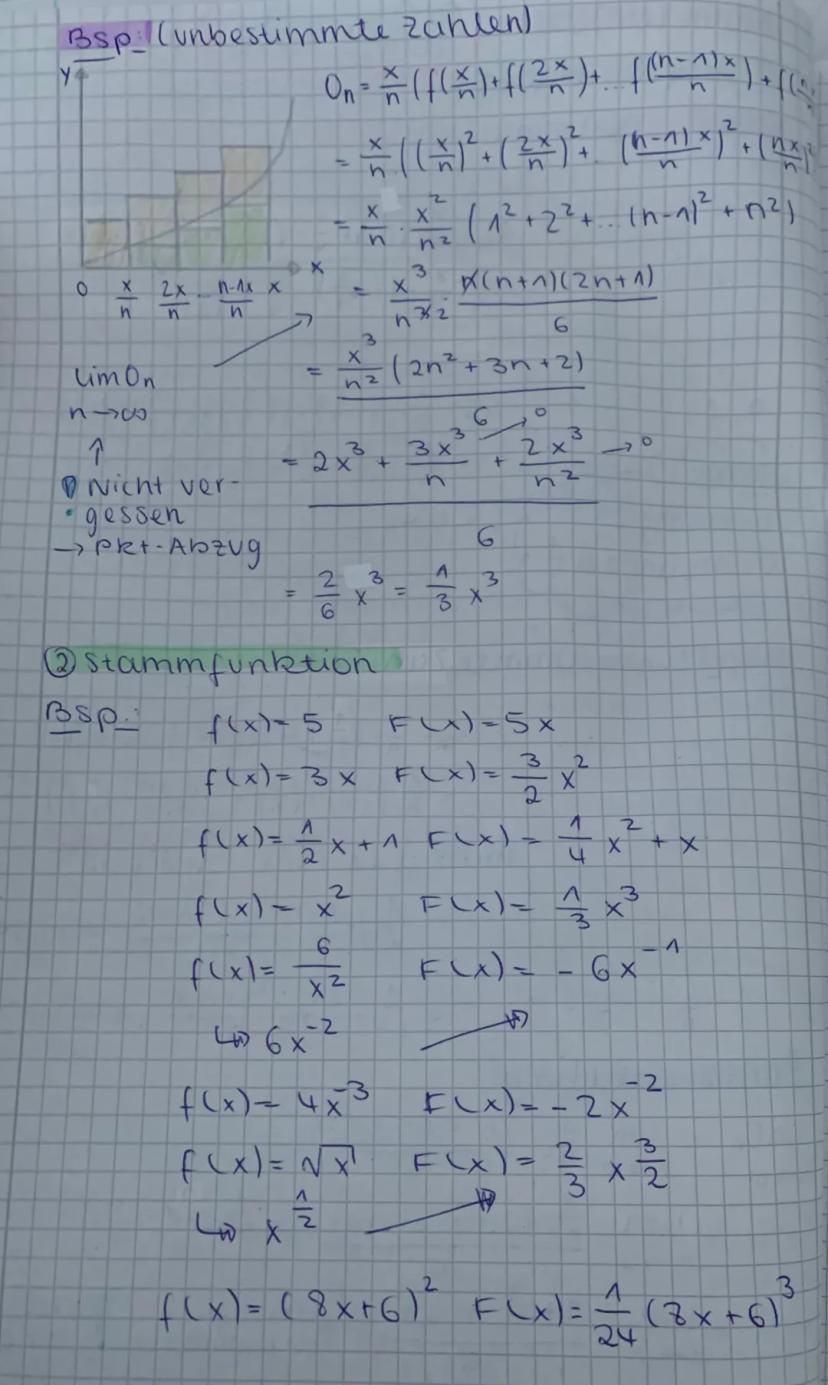 Bsp: (unbestimmte Zahlen)
y
Oₙ = x/n (f(x/n) + f(2x/n) + ... f((n-1)x/n) + f(
= x/n ((x/n)² + (2x/n)² + .. ((n-1)x/n)² + (nx/n)²
= x/n · x²/n² (1² + 2² + ... (n-1)² + n²)
x
0 x/n 2x/n .. n-1x/n x
= x³/n³̶ ² · n̶(n+1)(2n+1)/6
lim Oₙ
n→∞
= x³/n² (2n² + 3n + 2)/6
↑
= (2x³ + 3x³/n →0 + 2x³/n² →0)/6
Nicht ver-
gessen
→ Pkt-Abzug
= 2/6 x³ = 1/3 x³
② Stammfunktion
Bsp.: f(x) = 5 F(x) = 5x
f(x) = 3x F(x) = 3/2 x²
f(x) = 1/2 x + 1 F(x) = 1/4 x² + x
f(x) = x² F(x) = 1/3 x³
f(x) = 6/x² F(x) = - 6x⁻¹
↳ 6x⁻²
f(x) = 4x⁻³ F(x) = - 2x⁻²
f(x) = √x F(x) = 2/3 x^(3/2)
↳ x^(1/2)
f(x) = (8x+6)² F(x) = 1/24 (8x+6)³